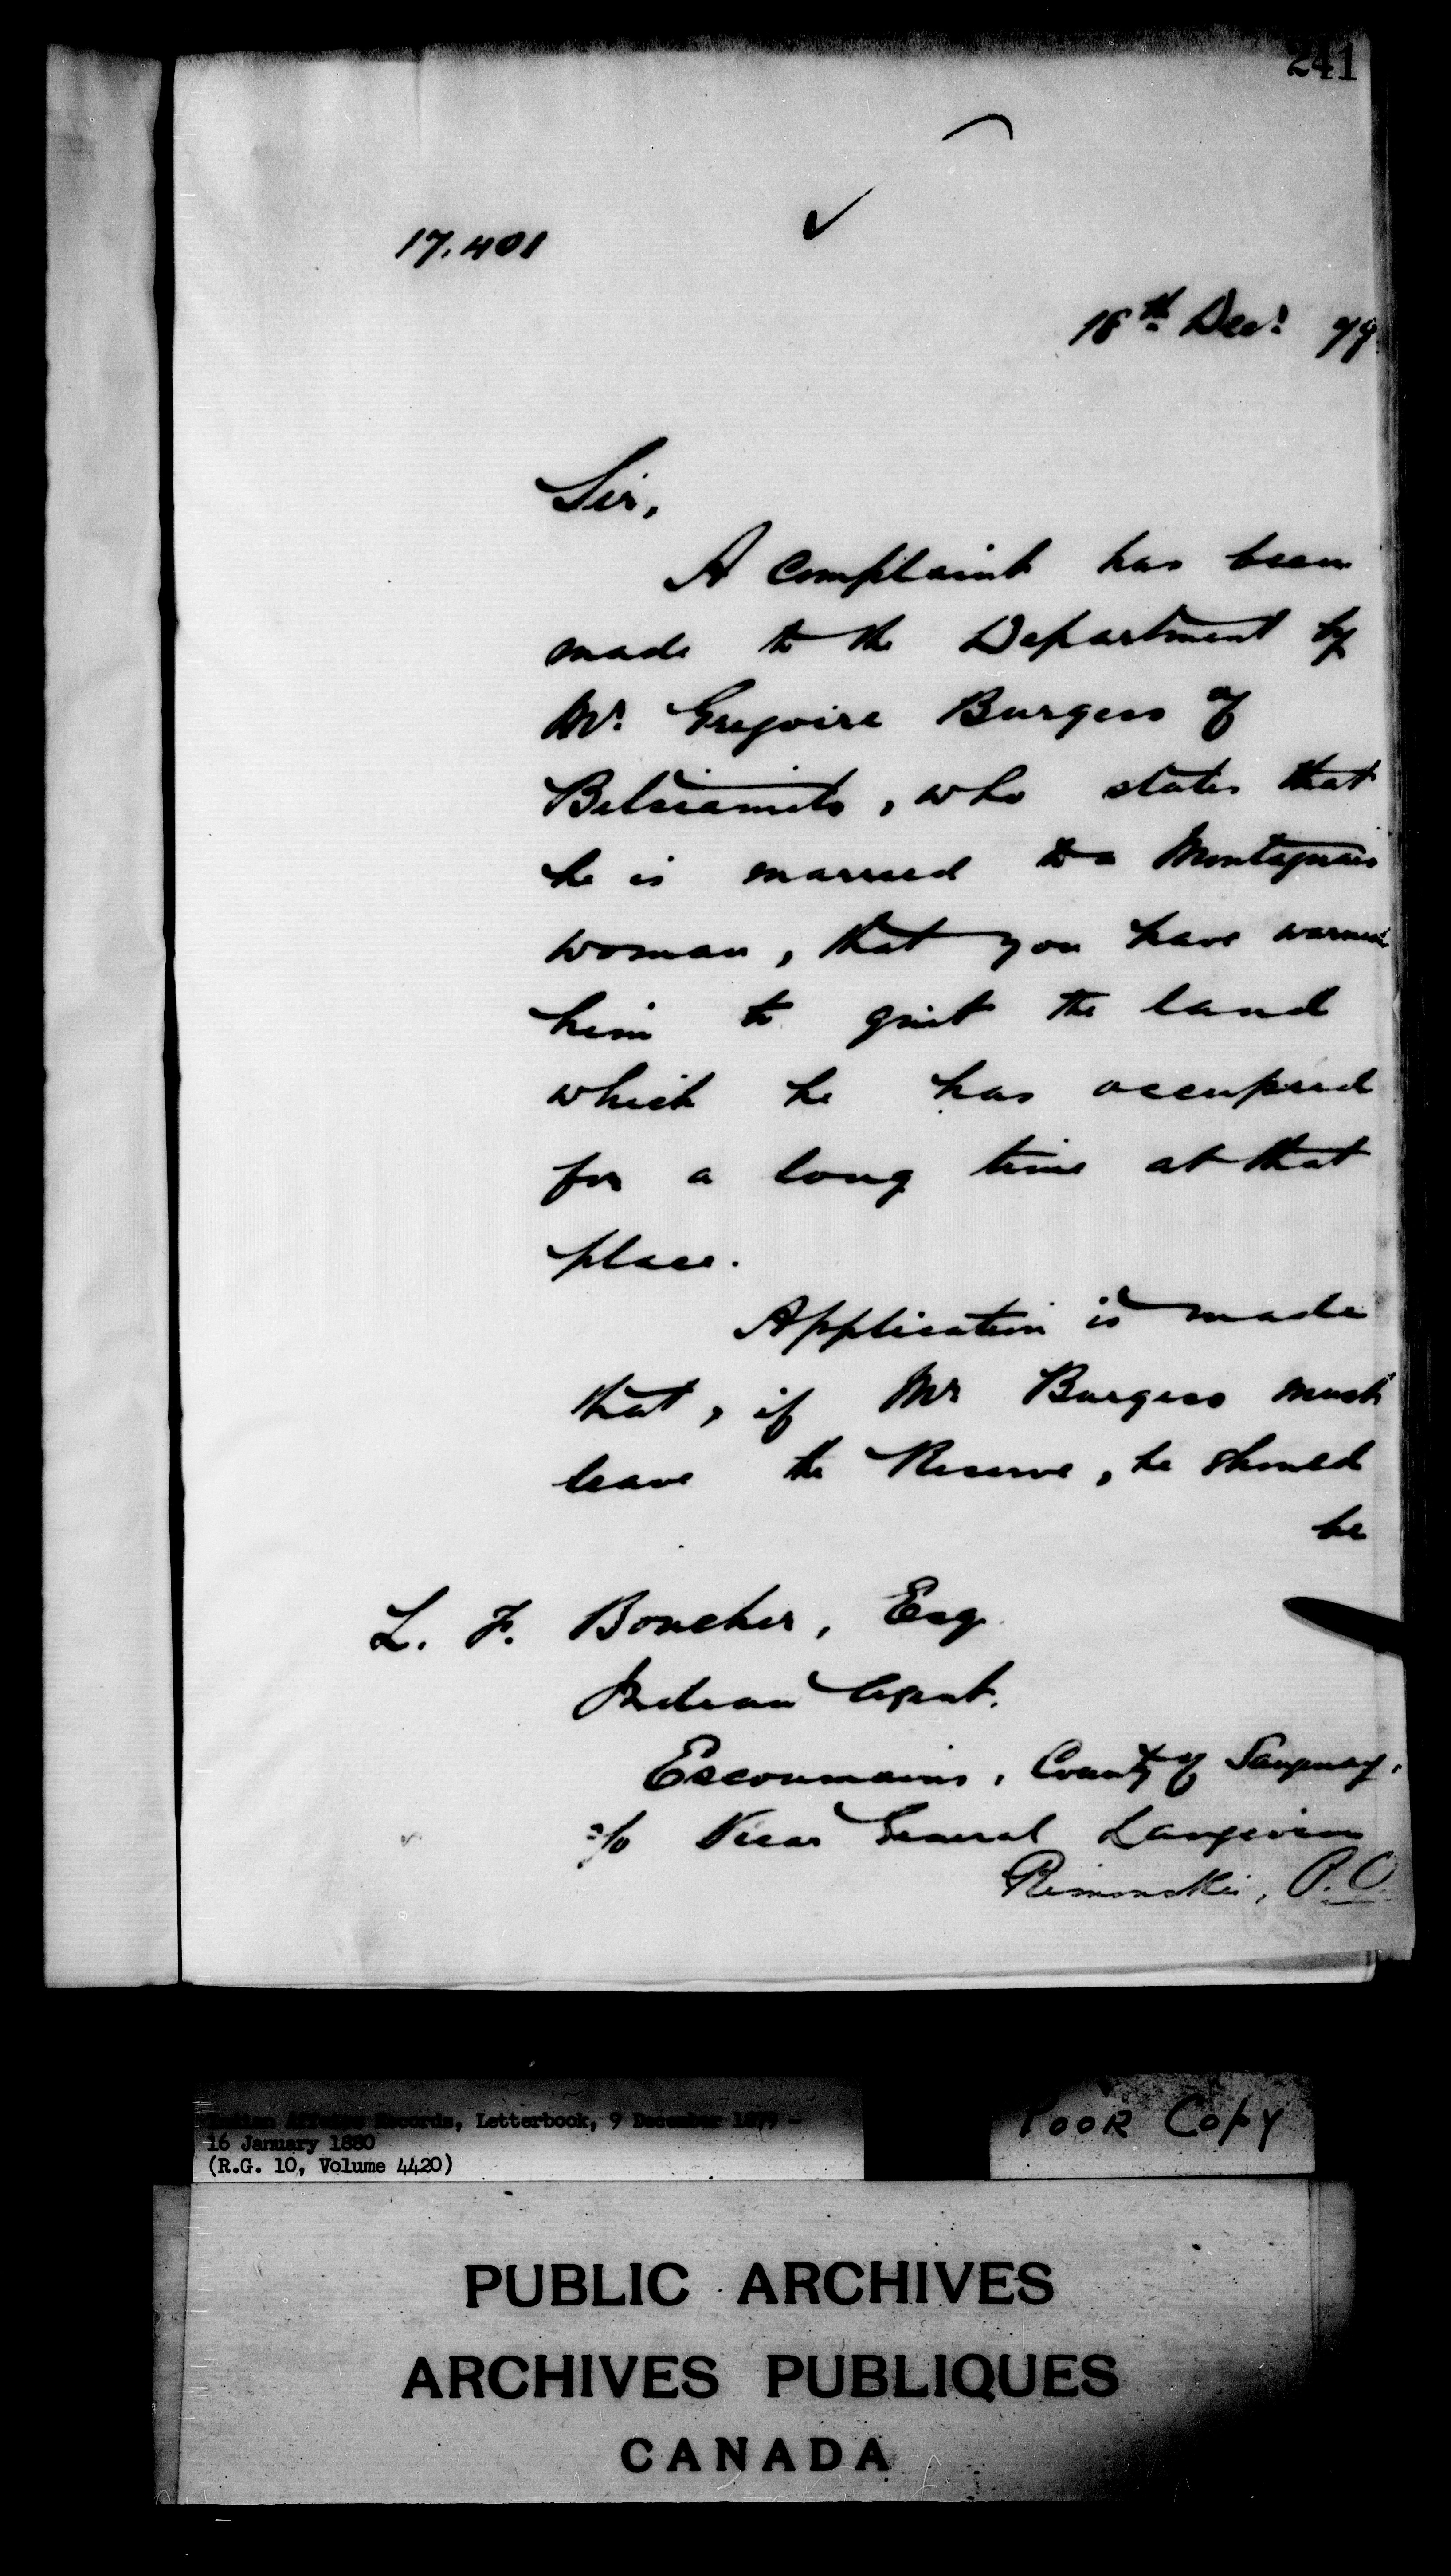 241
17.401
18th Decr 79
Sir,
A complaint has been
made to the Department by
Mr. Gregoire Burgess of
Betsiamits, who states that
he is married to a Montagnais
woman, that you have warned
him to quit the land
which he has occupied
for a long time at that
place.
Application is made
that, if Mr Burgess must
leave the Reserve, he should
be
L. F. Boucher, Esq.
Indian Agent.
Escoumains, County of Saguenay,
c/o Vicar General Langevin
Rimouski, P.Q.
Indian Affairs Records, Letterbook, 9 December 1879 -
16 January 1880
(R.G. 10, Volume 4420)
POOR COPY
PUBLIC ARCHIVES
ARCHIVES PUBLIQUES
CANADA